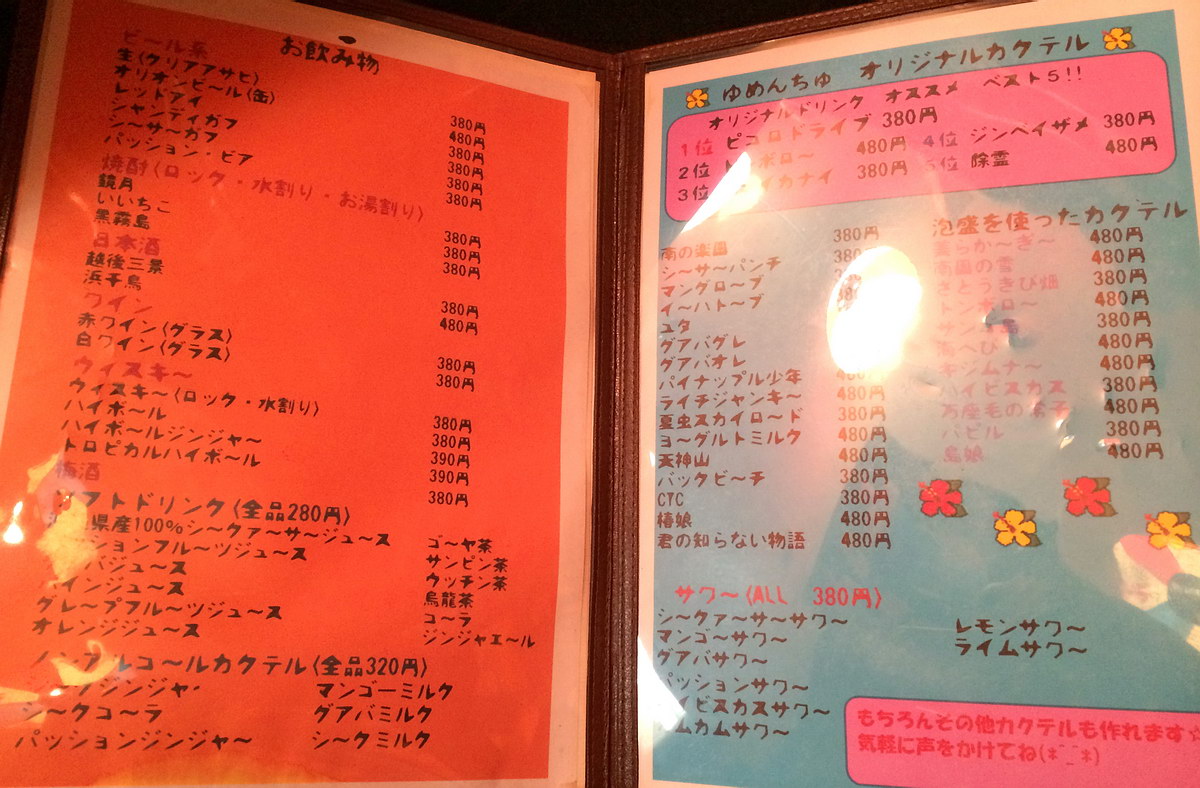 お飲み物
ビール系
生(クリアアサヒ) 380円
オリオンビール(缶) 480円
レッドアイ 380円
シャンディガフ 380円
シーサーガフ 380円
パッション・ビア 380円
焼酎(ロック・水割り・お湯割り)
鏡月 380円
いいちこ 380円
黒霧島 380円
日本酒
越後三景 380円
浜千鳥 480円
ワイン
赤ワイン(グラス) 380円
白ワイン(グラス) 380円
ウィスキー
ウィスキー(ロック・水割り) 380円
ハイボール 380円
ハイボールジンジャー 390円
トロピカルハイボール 390円
梅酒 380円
ソフトドリンク(全品280円)
県産100%シークァーサージュース
ゴーヤ茶
サンピン茶
ウッチン茶
グレープフルーツジュース
烏龍茶
オレンジジュース
コーラ
ジンジャエール
ノンアルコールカクテル(全品320円)
シークコーラ
パッションジンジャー
マンゴーミルク
グアバミルク
シークミルク
ゆめんちゅ オリジナルカクテル
オリジナルドリンク オススメ ベスト5!!
1位 ピコロドライブ 380円
2位 480円
3位 380円
4位 ジンベイザメ 380円
除霊 480円
南の楽園 380円
シーサーパンチ 380円
マングローブ
イーハトーブ
ユタ
グアバグレ
グアバオレ
パイナップル少年
ライチジャンキー 480円
夏虫スカイロード 380円
ヨーグルトミルク 480円
天神山 480円
バックビーチ 380円
CTC 380円
椿娘 480円
君の知らない物語 480円
泡盛を使ったカクテル
美らかーぎー 480円
南国の雪 480円
さとうきび畑 380円
トンボロー 480円
380円
480円
キジムナー 480円
ハイビスカス 380円
万座毛の 480円
パピル 380円
島娘 480円
サワー(ALL 380円)
シークァーサーサワー
マンゴーサワー
グアバサワー
パッションサワー
ハイビスカスサワー
カムカムサワー
レモンサワー
ライムサワー
もちろんその他カクテルも作れます☆
気軽に声をかけてね(*^_^*)